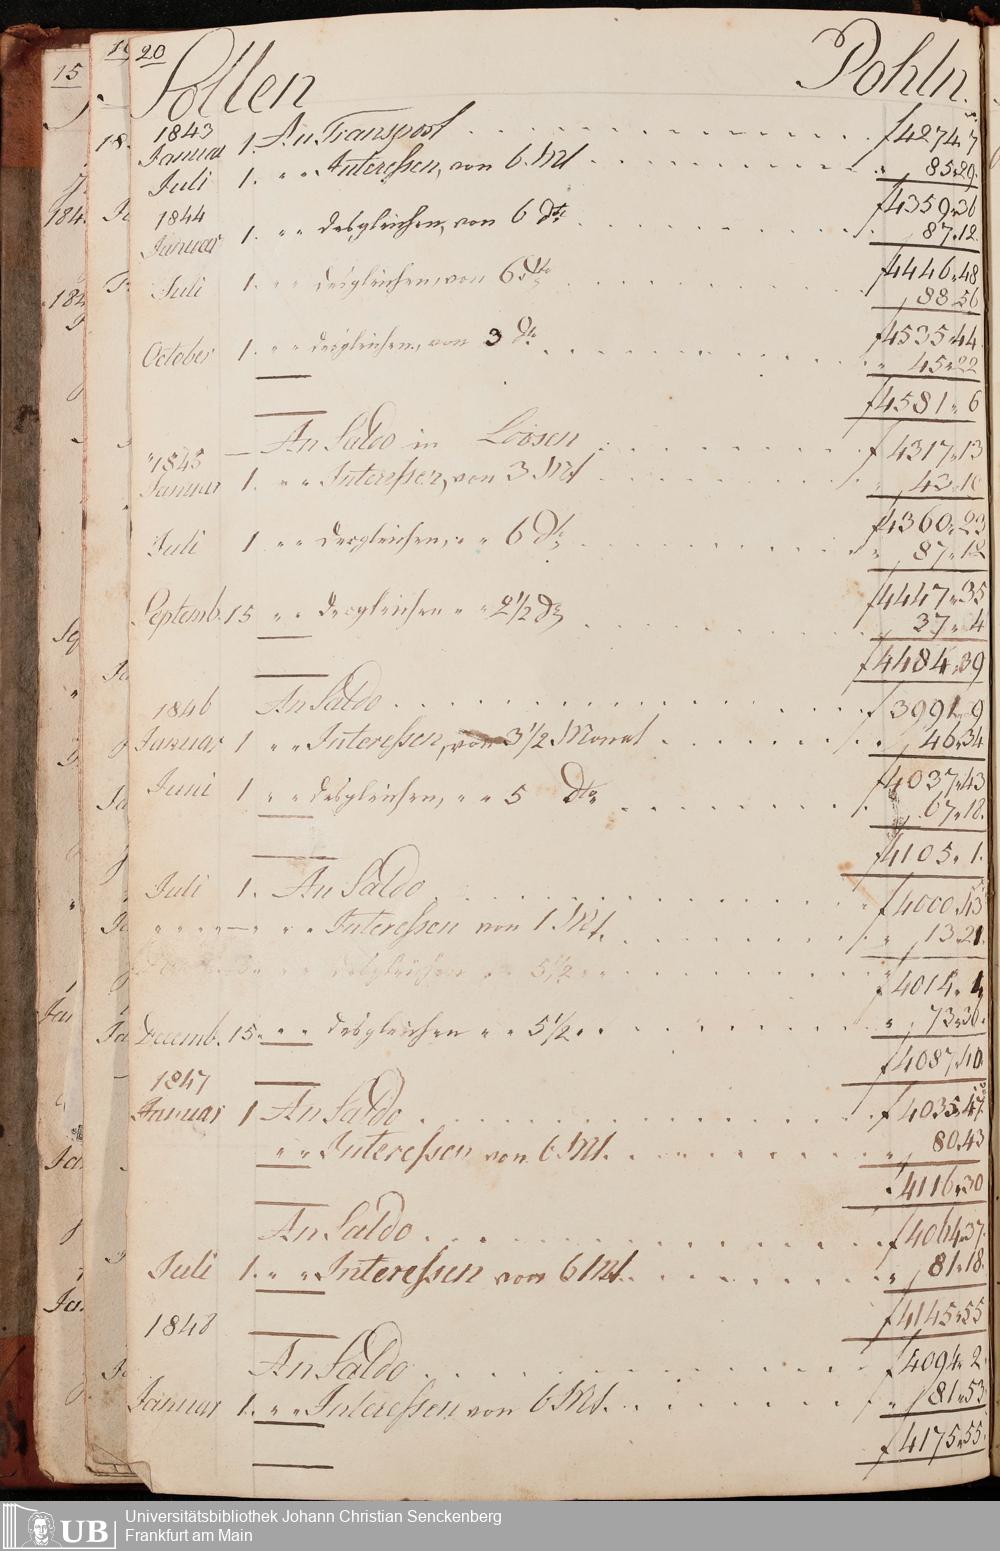 20
15
Sollen Pohln.
1843
Januar 1. An Transport f 4274,7
Juli 1. " " Interessen, von 6 Mt " 85"29
f 4359"36
1844
Januar 1. " " desgleichen, von 6 dto 87"12
f 4446"48
Juli 1. " " desgleichen, von 6 dto 88"56
f 4535"44
October 1. " " desgleichen, von 3 dto " 45"22
f 4581" 6
An Saldo in f 4317"13
1845
Januar 1. " " Interessen, von 3 Mt " 43"10
f 4360"23
Juli 1 " " desgleichen, " " 6 dto " 87"12
f 4447"35
Septemb. 15 " " desgleichen " " 2 1/2 dto 37" 4
f 4484"39
An Saldo f 3991" 9
1846
Januar 1 " " Interessen, von 3 1/2 Monat " 46"34
f 4037"43
Juni 1 " " desgleichen, " " 5 Dto 67"18.
f 4105" 1.
Juli 1. An Saldo f 4000"43
" " " " — " " Interessen von 1 Mt. " 13"21.
desgleichen " " 5 1/2 "
f 4014" 4
Decemb. 15. " " desgleichen " " 5 1/2 " " 73"36.
f 4087"40
1847
Januar 1 An Saldo f 4035"47
" " Interessen von 6 Mt. " 80"43
f 4116"30
An Saldo f 4064"37
Juli 1. " " Interessen von 6 Mt. " 81"18.
f 4145"55
1848
An Saldo f 4094" 2
Januar 1. " " Interessen von 6 Mt. " 81"53
f 4175"55.
UB
Universitätsbibliothek Johann Christian Senckenberg
Frankfurt am Main